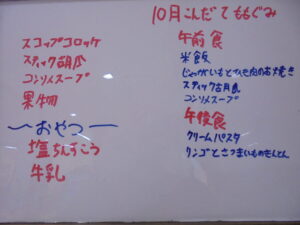 10月こんだて ももぐみ
スコップコロッケ
スティック胡瓜
コンソメスープ
果物
〜おやつ〜
塩ちんすこう
牛乳
午前食
米飯
じゃがいもとひき肉のお焼き
スティック胡瓜
コンソメスープ
午後食
クリームパスタ
リンゴとさつまいものきんとん